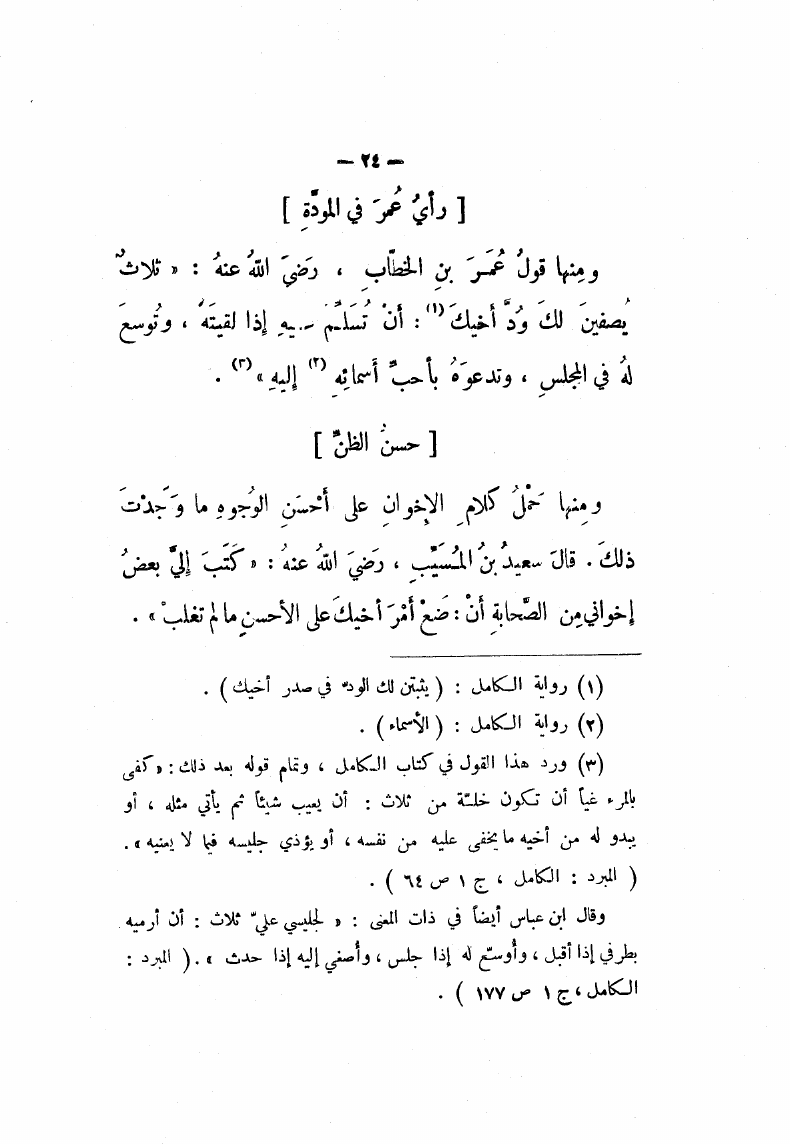 — ٢٤ —
[ رأيُ عُمرَ في المودَّةِ ]
ومِنها قولُ عُمَـرَ بنِ الخطّابِ ، رَضيَ اللهُ عنهُ : « ثلاثٌ
يُصفينَ لكَ وُدَّ أخيكَ (١) : أنْ تُسَلِّمَ ـيهِ إذا لقيتَهُ ، وتُوسعَ
لهُ في المجلسِ ، وتدعوَهُ بأحبِّ أسمائهِ (٢) إليهِ » (٣) .
[ حسنُ الظنِّ ]
ومنها حَمْلُ كلامِ الإخوانِ على أحْسَنِ الوُجوهِ ما وَجَدْتَ
ذلكَ . قالَ سعيدُ بنُ المُسَيَّبِ ، رَضيَ اللهُ عنهُ : « كَتَبَ إليَّ بعضُ
إخواني مِن الصَّحابةِ أنْ : ضَعْ أمْرَ أخيكَ على الأحسنِ ما لم تغلبْ » .
(١) رواية الكامل : ( يثبتن لك الودّ في صدر أخيك ) .
(٢) رواية الكامل : ( الأسماء ) .
(٣) ورد هذا القول في كتاب الكامل ، وتمام قوله بعد ذلك : « كفى
بالمرء غياً أن تكون خلـّة من ثلاث : أن يعيب شيئاً ثم يأتي مثله ، أو
يبدو له من أخيه ما يخفى عليه من نفسه ، أو يؤذي جليسه فيما لا يعنيه » .
( المبرد : الكامل ، ج ١ ص ٦٤ ) .
وقال ابن عباس أيضاً في ذات المعنى : « لجليسي عليّ ثلاث : أن أرميه
بطرفي إذا أقبل ، وأوسّع له إذا جلس ، وأصغي إليه إذا حدث » . ( المبرد :
الكامل ، ج ١ ص ١٧٧ ) .